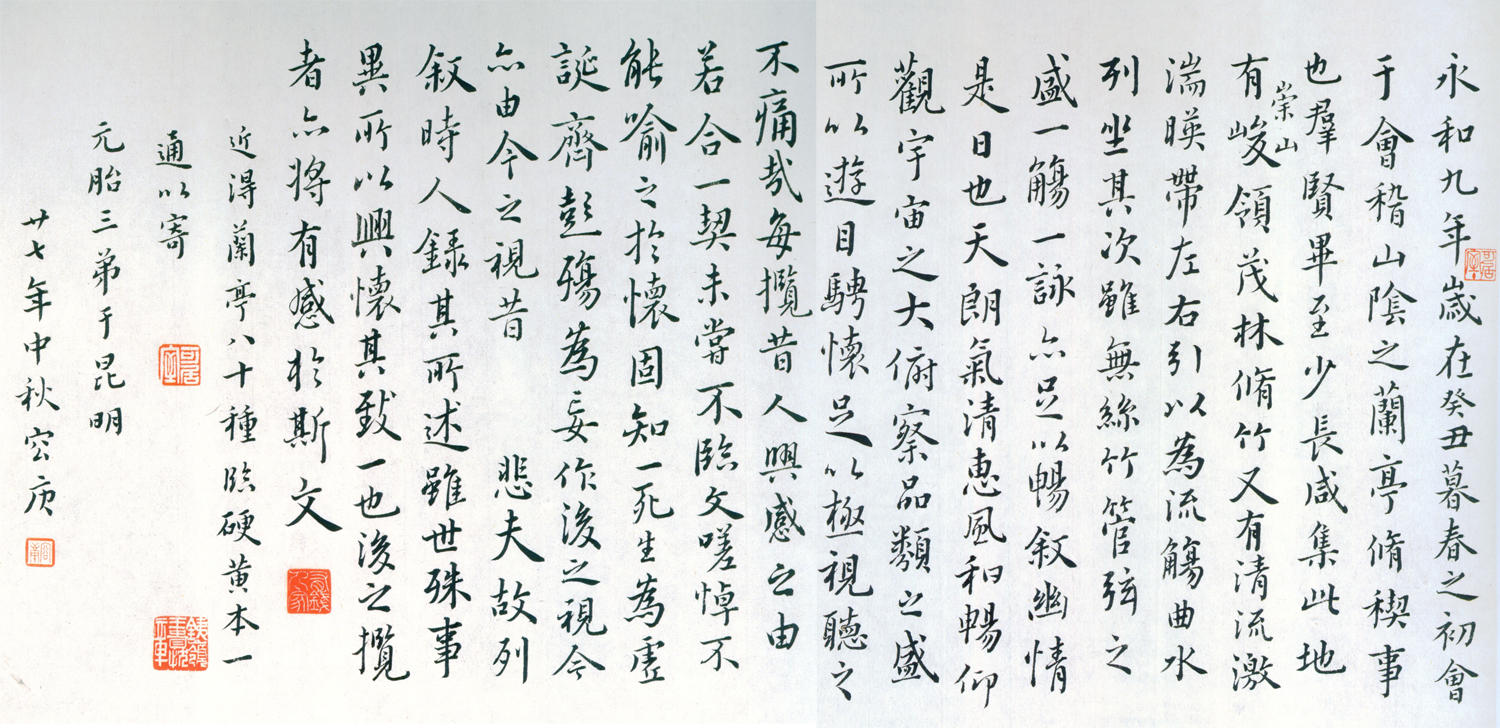 永和九年歲在癸丑暮春之初會
于會稽山陰之蘭亭脩稧事
也羣賢畢至少長咸集此地
有崇山峻領茂林脩竹又有清流激
湍暎帶左右引以為流觴曲水
列坐其次雖無絲竹管弦之
盛一觴一詠亦足以暢敘幽情
是日也天朗氣清惠風和暢仰
觀宇宙之大俯察品類之盛
所以遊目騁懷足以極視聽之
不痛哉每攬昔人興感之由
若合一契未嘗不臨文嗟悼不
能喻之於懷固知一死生為虛
誕齊彭殤為妄作後之視今
亦由今之視昔 悲夫故列
敘時人錄其所述雖世殊事
異所以興懷其致一也後之攬
者亦將有感於斯文
近得蘭亭八十種臨硬黃本一
通以寄
元胎三弟于昆明
廿七年中秋容庚